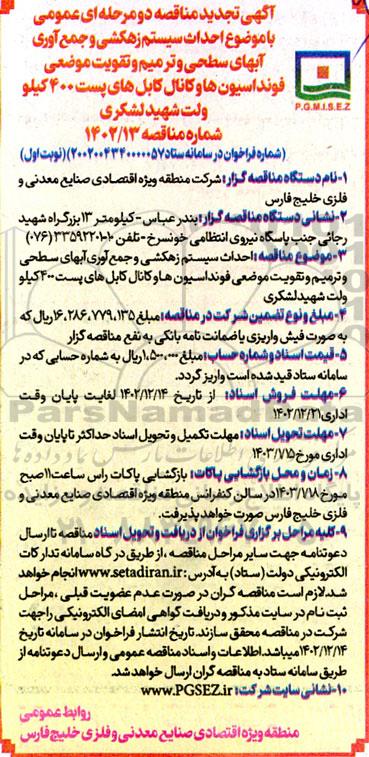 آگهی تجدید مناقصه دو مرحله ای عمومی
با موضوع احداث سیستم زهکشی و جمع آوری
آبهای سطحی و ترمیم و تقویت موضعی
فونداسیون ها و کانال کابل های پست ۴۰۰ کیلو
ولت شهید لشکری
شماره مناقصه ۱۴۰۲/۱۳
P.G.M.I.S.E.Z
(شماره فراخوان در سامانه ستاد ۲۰۰۲۰۰۴۳۴۰۰۰۰۰۵۷) (نوبت اول)
۱-نام دستگاه مناقصه گزار: شرکت منطقه ویژه اقتصادی صنایع معدنی و
فلزی خلیج فارس
۲-نشانی دستگاه مناقصه گزار: بندر عباس - کیلومتر ۱۳ بزرگراه شهید
رجائی جنب پاسگاه نیروی انتظامی خونسرخ - تلفن ۱۰-۳۳۵۹۲۲۰۱ (۰۷۶)
۳-موضوع مناقصه: احداث سیستم زهکشی و جمع آوری آبهای سطحی
و ترمیم و تقویت موضعی فونداسیون ها و کانال کابل های پست ۴۰۰ کیلو
ولت شهید لشکری
۴-مبلغ و نوع تضمین شرکت در مناقصه: مبلغ ۱۶,۲۸۶,۷۷۹,۱۳۵ ریال که
به صورت فیش واریزی یا ضمانت نامه بانکی به نفع مناقصه گزار
۵-قیمت اسناد و شماره حساب: مبلغ ۱,۵۰۰,۰۰۰ ریال به شماره حسابی که در
سامانه ستاد قید شده است واریز گردد.
۶-مهلت فروش اسناد: از تاریخ ۱۴۰۲/۱۲/۱۴ لغایت پایان وقت
اداری ۱۴۰۲/۱۲/۲۱
۷-مهلت تحویل اسناد: مهلت تکمیل و تحویل اسناد حداکثر تا پایان وقت
اداری مورخ ۱۴۰۳/۷۱۵
۸-زمان و محل بازگشایی پاکات: بازگشایی پاکات راس ساعت ۱۱ صبح
مورخ ۱۴۰۳/۷۱۸ در سالن کنفرانس منطقه ویژه اقتصادی صنایع معدنی و
فلزی خلیج فارس صورت خواهد پذیرفت.
۹-کلیه مراحل برگزاری فراخوان از دریافت و تحویل اسناد مناقصه تا ارسال
دعوتنامه جهت سایر مراحل مناقصه، از طریق درگاه سامانه تدارکات
الکترونیکی دولت (ستاد) به آدرس: www.setadiran.ir انجام خواهد
شد. لازم است مناقصه گران در صورت عدم عضویت قبلی، مراحل
ثبت نام در سایت مذکور و دریافت گواهی امضای الکترونیکی را جهت
شرکت در مناقصه محقق سازند. تاریخ انتشار فراخوان در سامانه تاریخ
۱۴۰۲/۱۲/۱۴ میباشد. اطلاعات و اسناد مناقصه عمومی و ارسال دعوتنامه از
طریق سامانه ستاد به مناقصه گران ارسال خواهد شد.
۱۰-نشانی سایت شرکت: www.PGSEZ.ir
روابط عمومی
منطقه ویژه اقتصادی صنایع معدنی و فلزی خلیج فارس